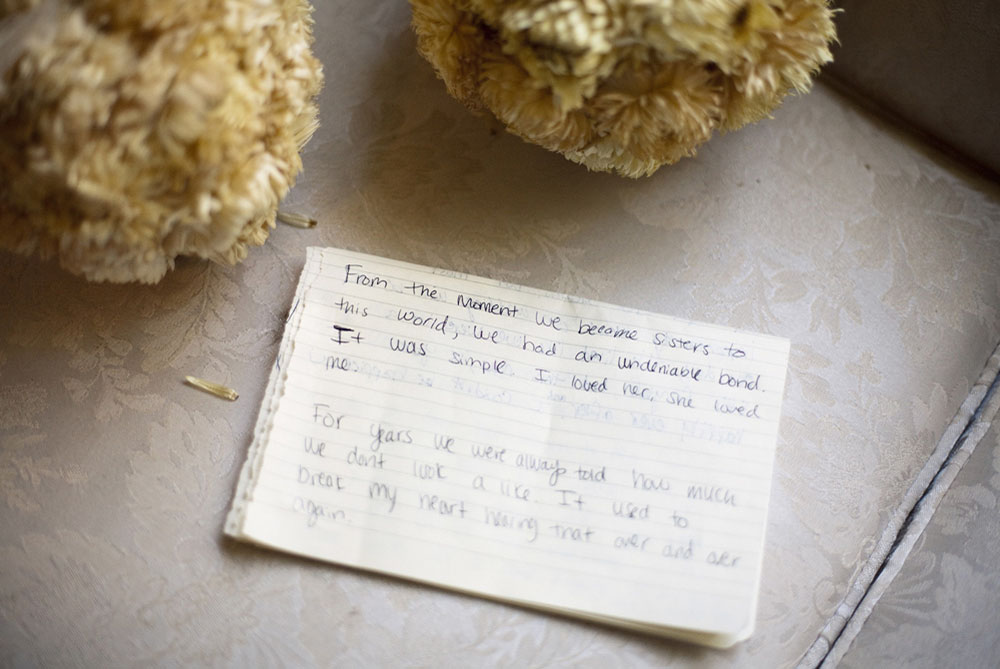 From the Moment we became sisters to
this world, we had an undeniable bond.
It was simple I loved her, she loved
me
For years we were always told how much
we dont look a like. It used to
break my heart hearing that over and over
again.